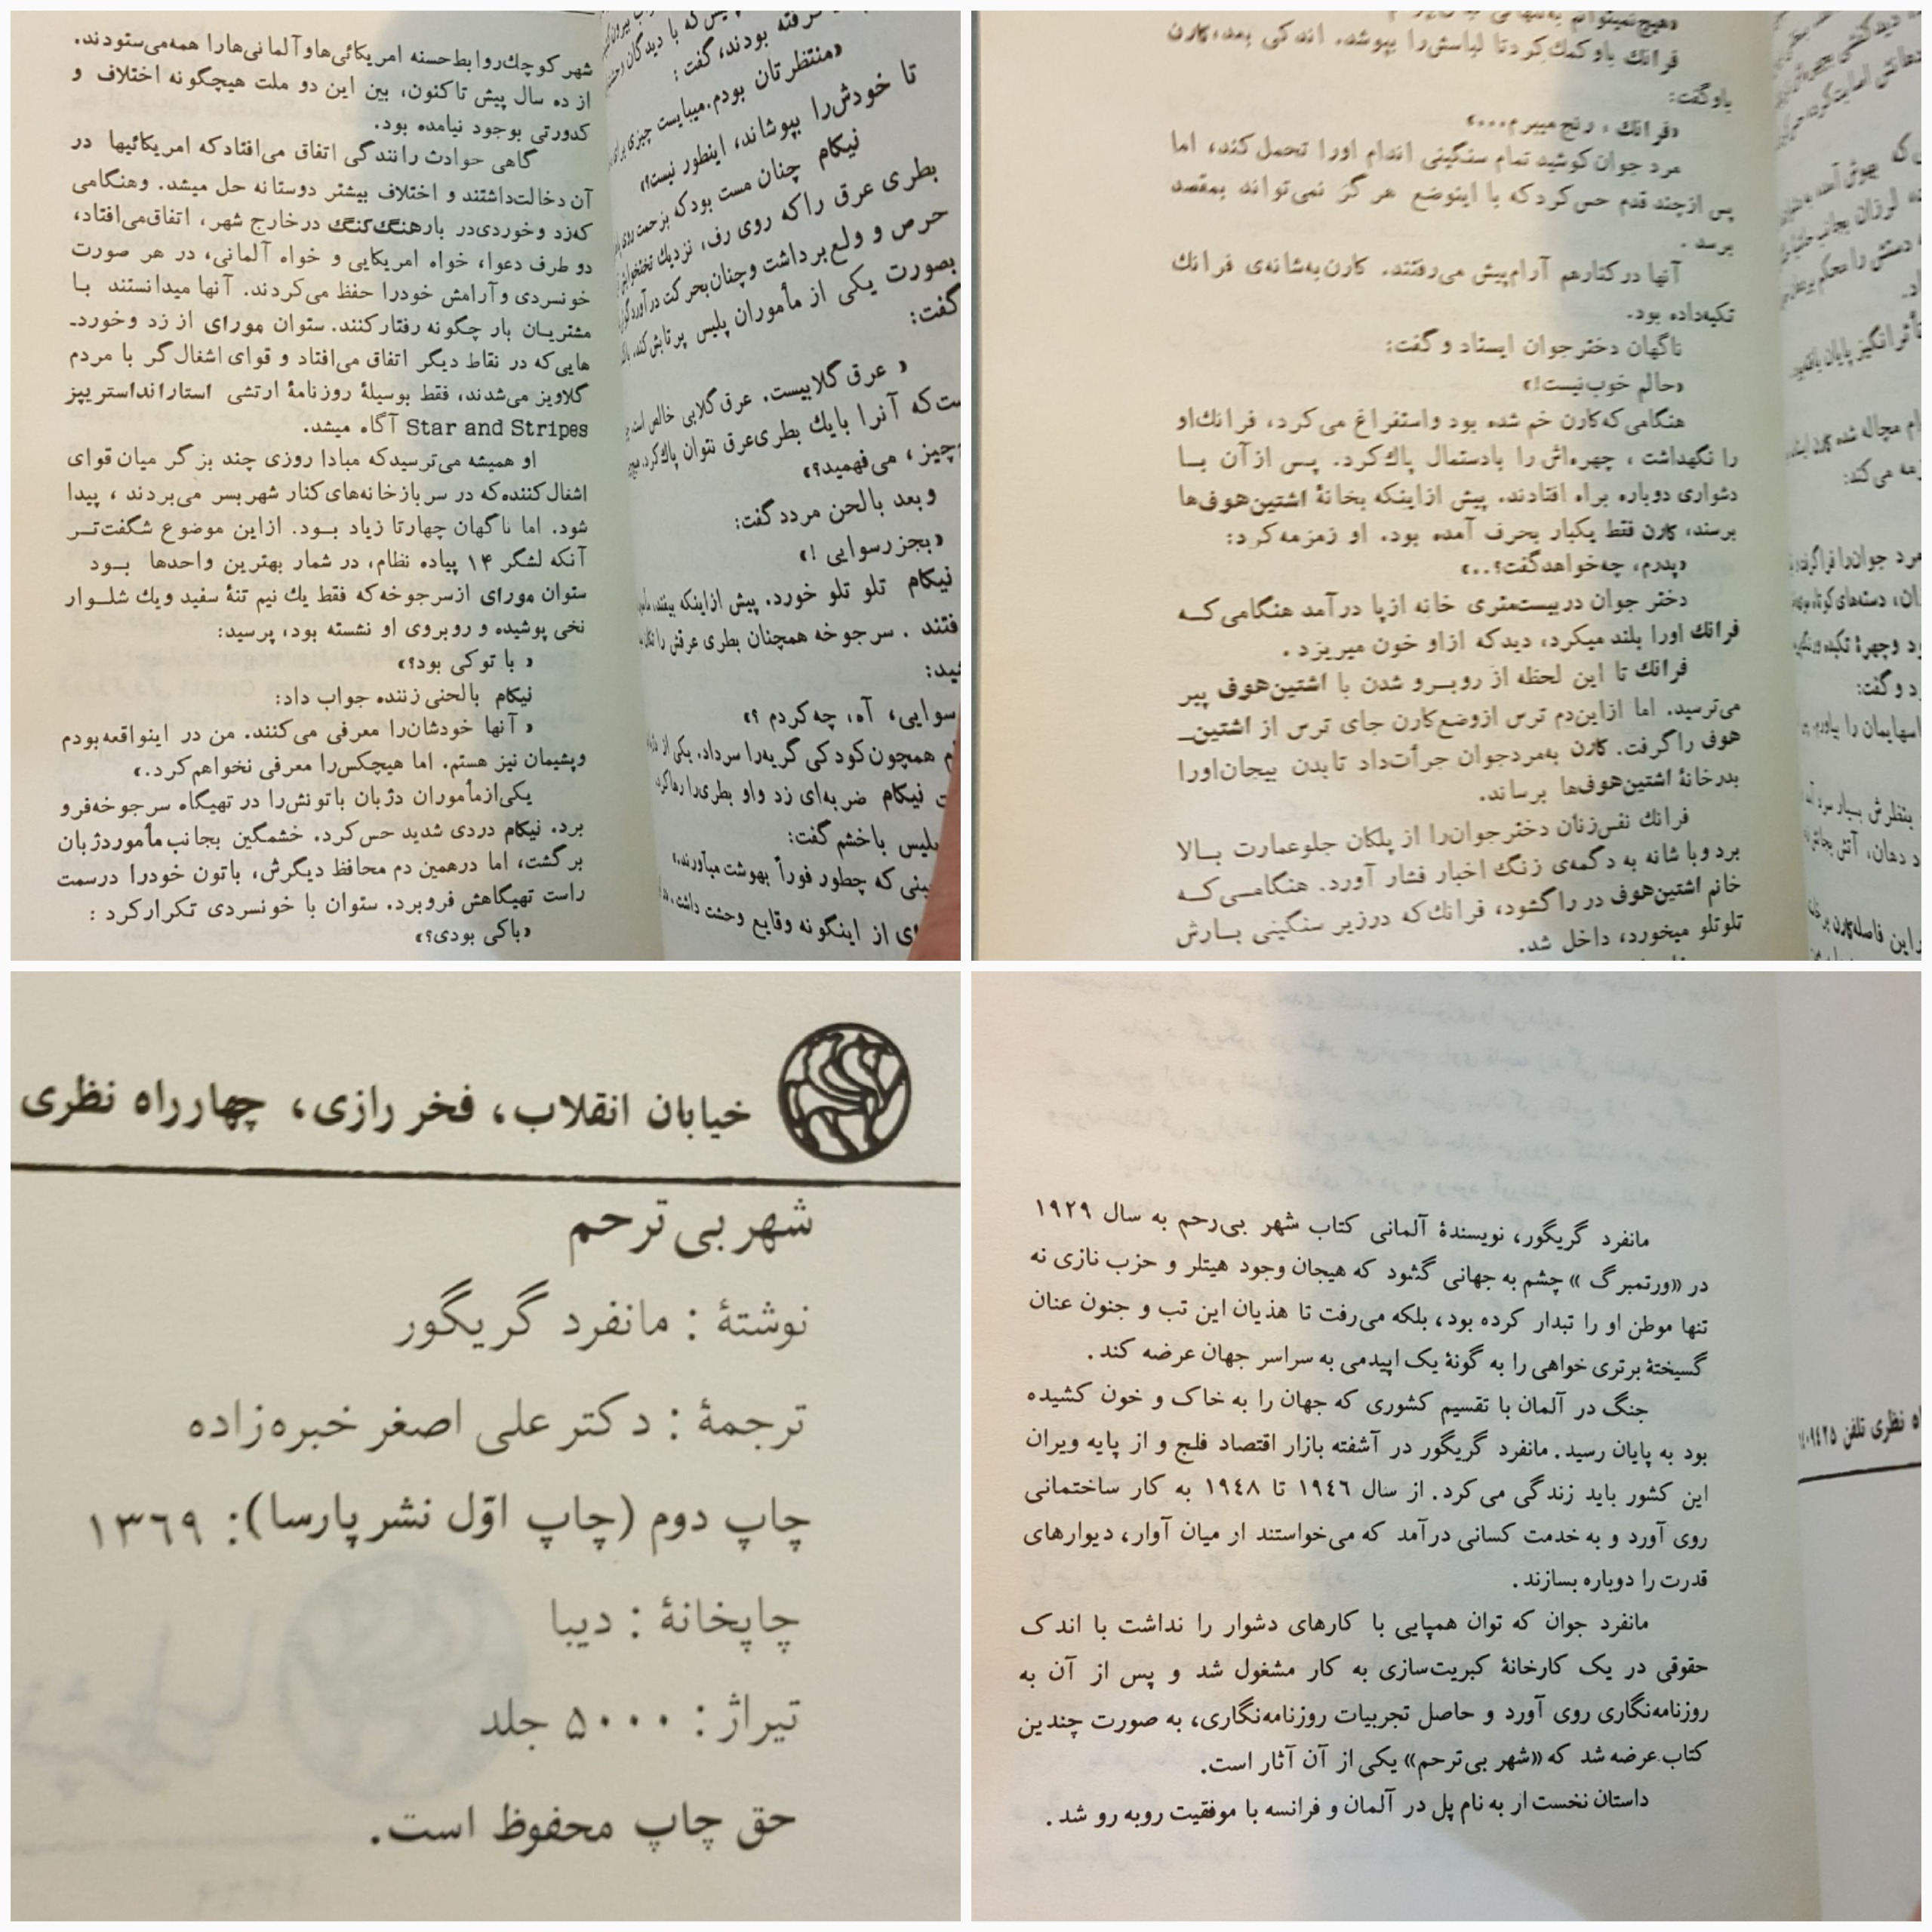 شهر کوچك روابط حسنه امریکائی‌ها و آلمانی‌ها را همه می‌ستودند.
از ده سال پیش تاکنون، بین این دو ملت هیچگونه اختلاف و
کدورتی بوجود نیامده بود.
گاهی حوادث رانندگی اتفاق می‌افتاد که امریکائیها در
آن دخالت داشتند و اختلاف بیشتر دوستانه حل میشد. وهنگامی
که زد وخوردی در بار هنگ‌کنگ در خارج شهر، اتفاق می‌افتاد،
دو طرف دعوا، خواه امریکایی و خواه آلمانی، در هر صورت
خونسردی و آرامش خودرا حفظ می‌کردند. آنها میدانستند بـا
مشتریـان بار چگونه رفتار کنند. ستوان مورای از زد وخوردـ
هایی‌که در نقاط دیگر اتفاق می‌افتاد و قوای اشغال‌گر با مردم
گلاویز می‌شدند، فقط بوسیلهٔ روزنامهٔ ارتشی استاراند‌استریپز
Star and Stripes آگاه میشد.
او همیشه می‌ترسیدکه مبادا روزی چند بزگر میان قوای
اشغال‌کننده‌که در سربازخانه‌های کنار شهر بسر می‌بردند ، پیدا
شود. اما ناگهان چهارتا زیاد بـود. ازاین موضوع شگفت‌تـر
آنکه لشگر ۱۴ پیاده نظام، در شمار بهترین واحدها بـود
ستوان مورای ازسرجوخه‌که فقط یك نیم تنهٔ سفید ویك شلـوار
نخی پوشیده و روبروی او نشسته بود، پرسید:
« با تو کی بود؟»
نیکام بالحنی زننده جواب داد:
« آنها خودشان‌را معرفی می‌کنند. من در اینواقعه بودم
وپشیمان نیز هستم. اما هیچکس‌را معرفی نخواهم کرد.»
یکی‌ازمأموران دژبان باتونش‌را در تهیگاه سرجوخه‌فرو
برد. نیکام دردی شدید حس کرد. خشمگین بجانب مأموردژبان
برگشت، اما درهمین دم محافظ دیگرش، باتون خودرا درسمت
راست تهیگاهش فروبرد. ستوان با خونسردی تکرارکرد :
«باکی بودی؟»
که با دیدگان
گرفته بودند، گفت :
«منتظرتان بودم. میبایست چیزی
تا خودش‌را بپوشاند، اینطور نیست؟»
نیکام چنان مست بودکه بزحمت روی
بطری عرق راکه روی رف، نزدیك تختخوابش
حرص و ولع برداشت وچنان بحرکت درآورد
بصورت یکی از مأموران پلیس پرتابش کند.
گفت:
« عرق گلابیست. عرق گلابی خالص است.
ست‌که آنرا بایك بطری‌عرق نتوان پاك کرد.
چیز، می‌فهمید؟»
وبعد بالحن مردد گفت:
«بجز رسوایی !»
نیکام تلو تلو خورد. پیش ازاینکه بیفتد،
فتند . سرجوخه همچنان بطری عرقش را
ید:
سوایی، آه، چه‌کردم ؟»
همچون کودکی گریه‌را سرداد. یکی از
نیکام ضربه‌ای زد واو بطری‌را رهاکرد.
پلیس باخشم گفت:
بینی که چطور فوراً بهوشت میآورند.»
ای از اینگونه وقایع وحشت داشت.
فرانك باوکمك کردتا لباسش‌را بپوشد. اندکی بعد، کارن
باوگفت:
«فرانك ، رنج میبرم...»
مرد جوان کوشید تمام سنگینی اندام اورا تحمل کند، اما
پس ازچند قدم حس کردکه با اینوضع هرگز نمی‌تواند بمقصد
برسد .
آنها درکنارهم آرام پیش می‌رفتند. کارن به‌شانه‌ی فرانك
تکیه‌داده بود.
ناگهان دخترجوان ایستاد و گفت:
«حالم خوب نیست!»
هنگامی‌که‌کارن خم شده بود واستفراغ می‌کرد، فرانك‌او
را نگهداشت ، چهره‌اش را بادستمال پاك‌کرد. پس ازآن بـا
دشواری دوباره براه افتادند. پیش ازاینکه بخانهٔ اشتین‌هوف‌ها
برسند، کارن فقط یکبار بحرف آمده بود. او زمزمه کرد:
«پدرم، چه‌خواهدگفت؟..»
دختر جوان دربیست‌متری خانه ازپا درآمد هنگامی‌کـه
فرانك اورا بلند میکرد، دیدکه ازاو خون میریزد .
فرانك تا این لحظه از روبـرو شدن با اشتین‌هوف پیر
می‌ترسید. اما ازاین‌دم ترس ازوضع‌کارن جای ترس از اشتین‌ـ
هوف راگرفت. کارن به‌مردجوان جرأت‌داد تابدن بیجان‌اورا
بدرخانهٔ اشتین‌هوف‌ها برساند.
فرانك نفس‌زنان دخترجوان‌را از پلکان جلوعمارت بـالا
برد وبا شانه به دگمه‌ی زنگ اخبار فشار آورد. هنگامـی‌کـه
خانم اشتین‌هوف در راگشود، فرانك‌که درزیر سنگینی بـارش
تلوتلو میخورد، داخل شد.
بهوش آمد،
لرزان بجانب
دستش را محکم
ثرانگیز پایان
ام مچاله شده
مه می‌کند:
مرد جوان‌را فراگرفت
ان، دسته‌های کوتاه
د وچهرهٔ تکیده
د و گفت:
اسهایمان را بیاورم،
بنظرش بسیار سرد آمد
د دهان،
راین فاصله‌کارن
خیابان انقلاب، فخر رازی، چهارراه نظری
شهر بی‌ترحم
نوشتهٔ : مانفرد گریگور
ترجمهٔ : دکتر علی اصغر خبره‌زاده
چاپ دوم (چاپ اوّل نشر پارسا): ۱۳۶۹
چاپخانهٔ : دیبا
تیراژ : ۵۰۰۰ جلد
حق چاپ محفوظ است.
مانفرد گریگور، نویسندهٔ آلمانی کتاب شهر بی‌رحم به سال ۱۹۲۹
در «ورتمبرگ » چشم به جهانی گشود که هیجان وجود هیتلر و حزب نازی نه
تنها موطن او را تبدار کرده بود، بلکه می‌رفت تا هذیان این تب و جنون عنان
گسیختهٔ برتری خواهی را به گونهٔ یک اپیدمی به سراسر جهان عرضه کند .
جنگ در آلمان با تقسیم کشوری که جهان را به خاک و خون کشیده
بود به پایان رسید. مانفرد گریگور در آشفته بازار اقتصاد فلج و از پایه ویران
این کشور باید زندگی می‌کرد. از سال ۱۹۴۶ تا ۱۹۴۸ به کار ساختمانی
روی آورد و به خدمت کسانی درآمد که می‌خواستند از میان آوار، دیوارهای
قدرت را دوباره بسازند.
مانفرد جوان که توان همپایی با کارهای دشوار را نداشت با اندک
حقوقی در یک کارخانهٔ کبریت‌سازی به کار مشغول شد و پس از آن به
روزنامه‌نگاری روی آورد و حاصل تجربیات روزنامه‌نگاری، به صورت چندین
کتاب عرضه شد که «شهر بی‌ترحم» یکی از آن آثار است.
داستان نخست از به نام پل در آلمان و فرانسه با موفقیت روبه رو شد .
نظری تلفن